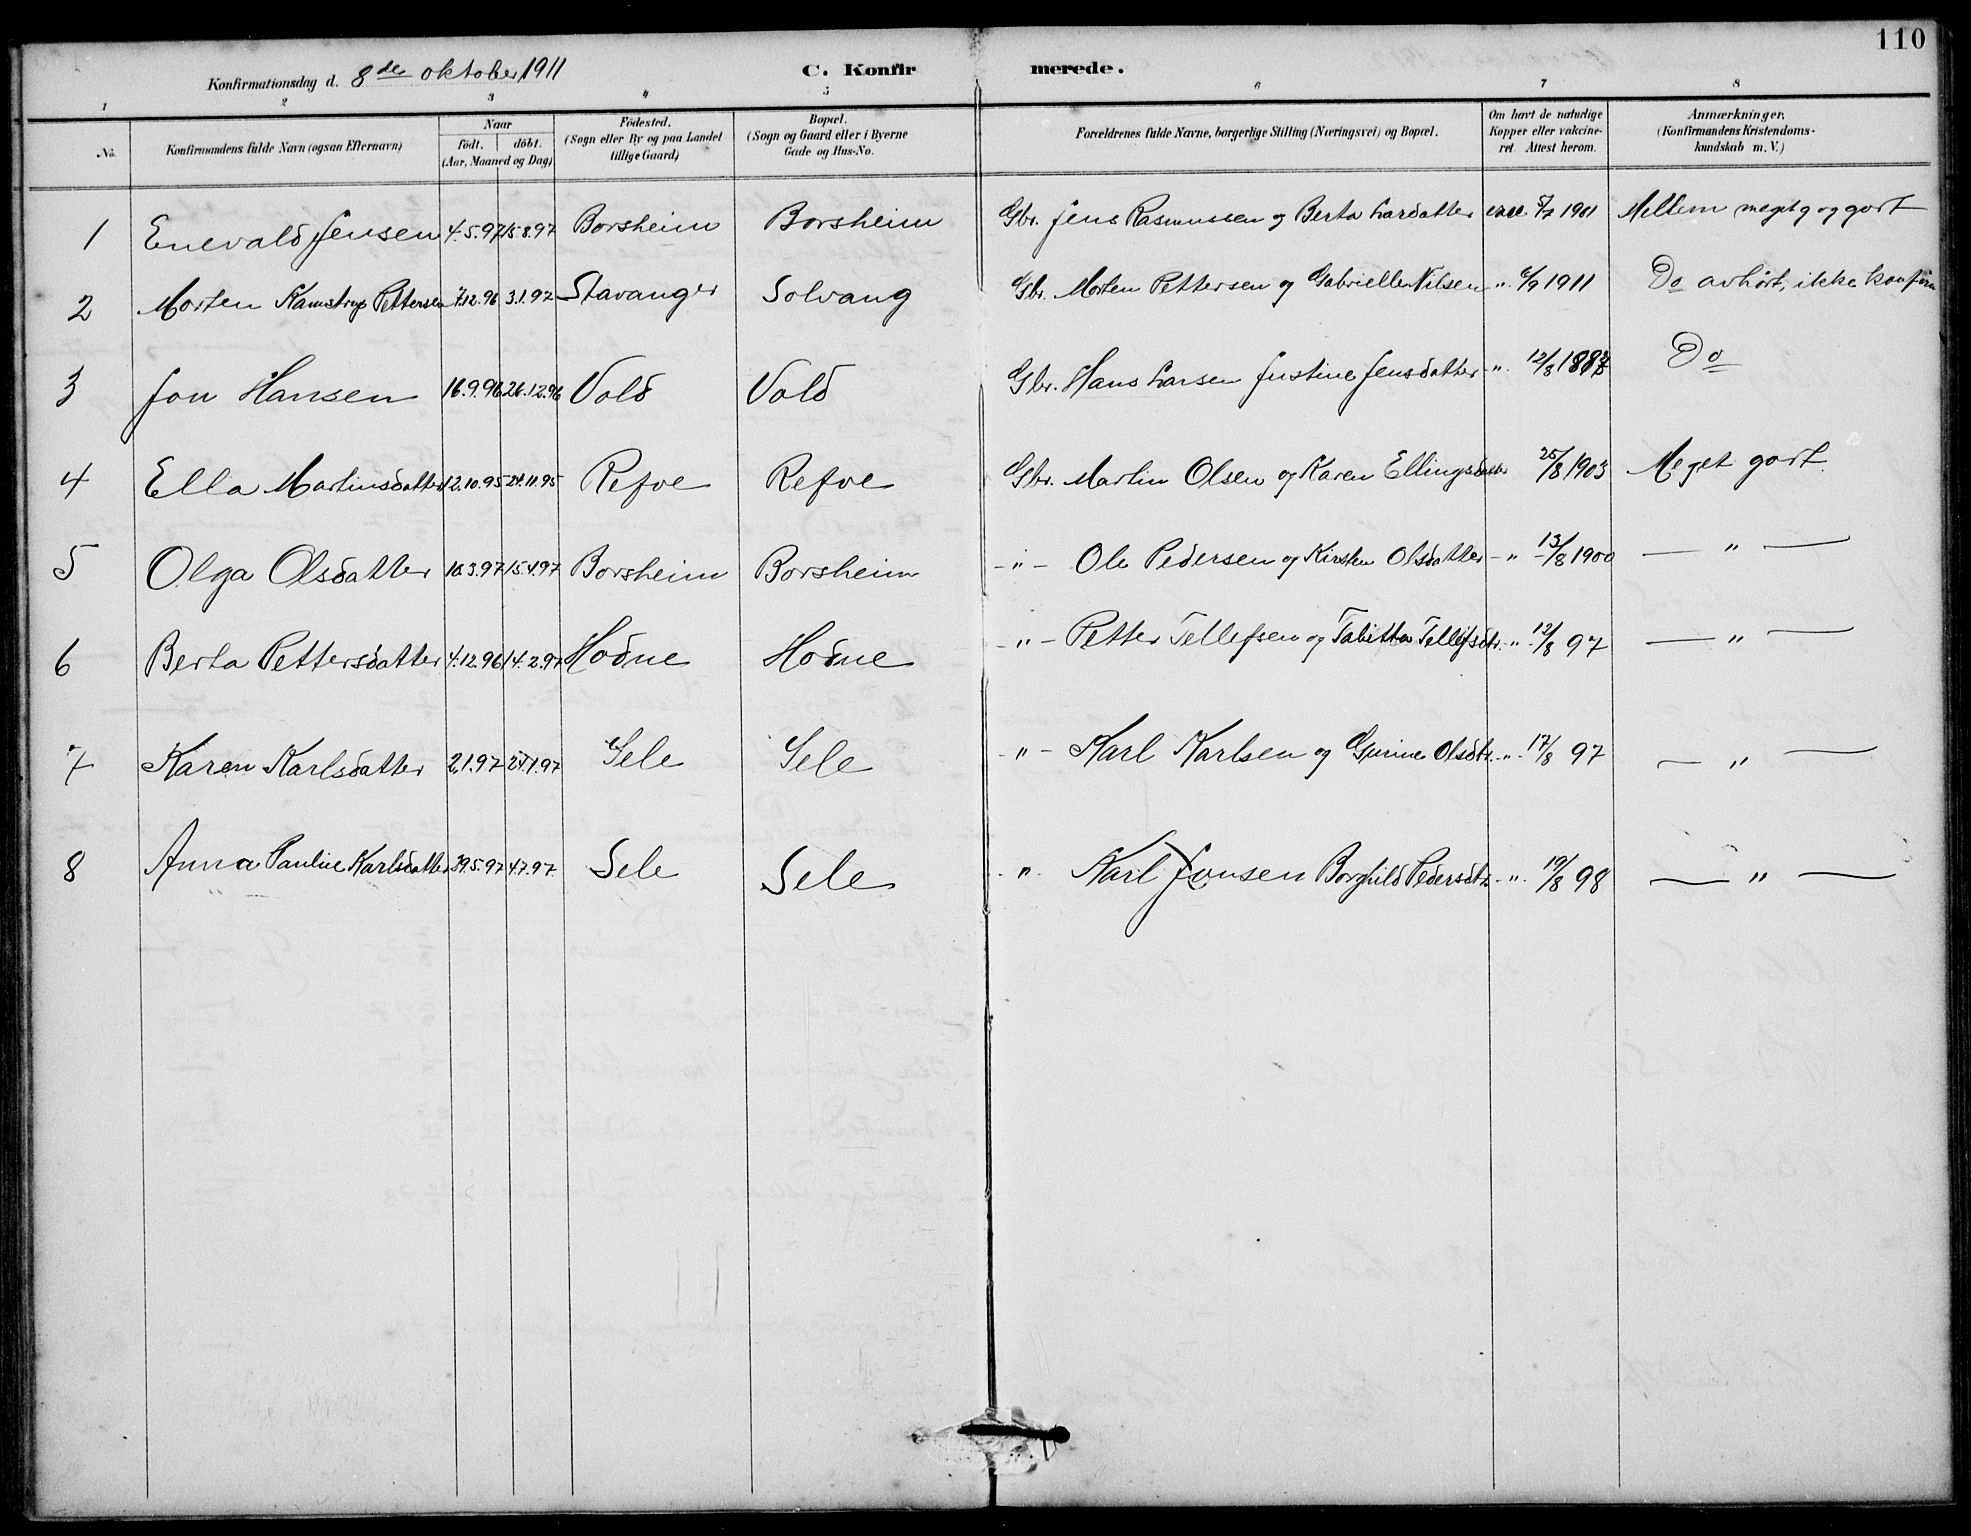 110
Konfirmationsdag d. 8de oktober 1911 C. Konfirmerede.
1 2 3 4 5 6 7 8
No. Konfirmandens fulde Navn (ogsaa Efternavn) Naar födt. döbt. (Aar, Maaned og Dag) Födested. (Sogn eller By og paa Landet tillige Gaard) Bopæl. (Sogn og Gaard eller i Byerne Gade og Hus-No. Forældrenes fulde Navne, borgerlige Stilling (Næringsvei) og Bopæl. Om havt de naturlige Kopper eller vakcineret Attest herom. Anmærkninger. (Konfirmandens Kristendomskundskab m. V.)
1 Enevald Jensen 4.5.97 15.8.97 Borsheim Borsheim Gbr. Jens Rasmussen og Berta Larsdatter vacc 1901 Mellem meget g og godt
2 Morten Kamstrup Pettersen 7.12.96 3.1.97 Stavanger Solvang Gbr. Morten Pettersen og Gabrielle Nilsen " 6/9 1911 Do avhørt, ikke konfirm
3 Jon Hansen 16.9.96 26.12.96 Vold Vold Gbr. Hans Larsen Justine Jensdatter " 12/8 Do
4 Ella Martinsdatter 12.10.95 24.11.95 Refve Refve Gbr. Martin Olsen og Karen Ellingsdatter 25/8 1903 Meget godt.
5 Olga Olsdatter 10.3.97 15.4.97 Borsheim Borsheim - " - Ole Pedersen og Kirsten Olsdatter - " 13/8 1900 — " —
6 Berta Pettersdatter 4.12.96 14.2.97 Hodne Hodne - " - Petter Tellefsen og Tabitta Tellefsdtr. - " 12/8 97 — " —
7 Karen Karlsdatter 2.1.97 24.1.97 Sele Sele - " - Karl Karlsen og Gurine Olsdtr. - " 17/8 97 — " —
8 Anna Pauline Karlsdatter 5.97 4.7.97. Sele Sele - " - Karl Jonsen Borghild Pedersdtr. - " 19/8 98 — " —